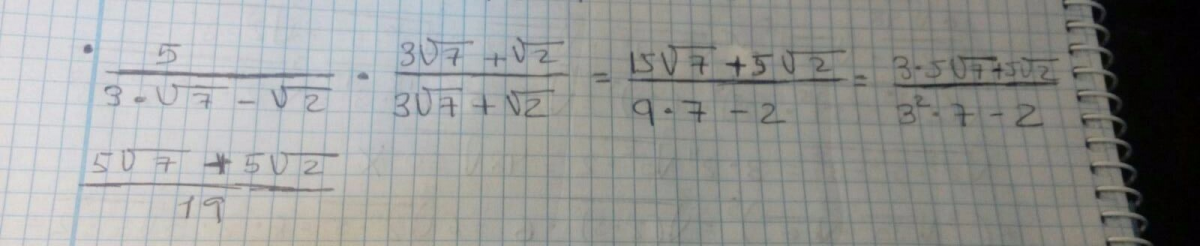 • 5/(3·√7 - √2) · (3√7 + √2)/(3√7 + √2) = (15√7 + 5√2)/(9·7 - 2) = (3·5√7+5√2)/(3²·7 - 2)
(5√7 + 5√2)/19